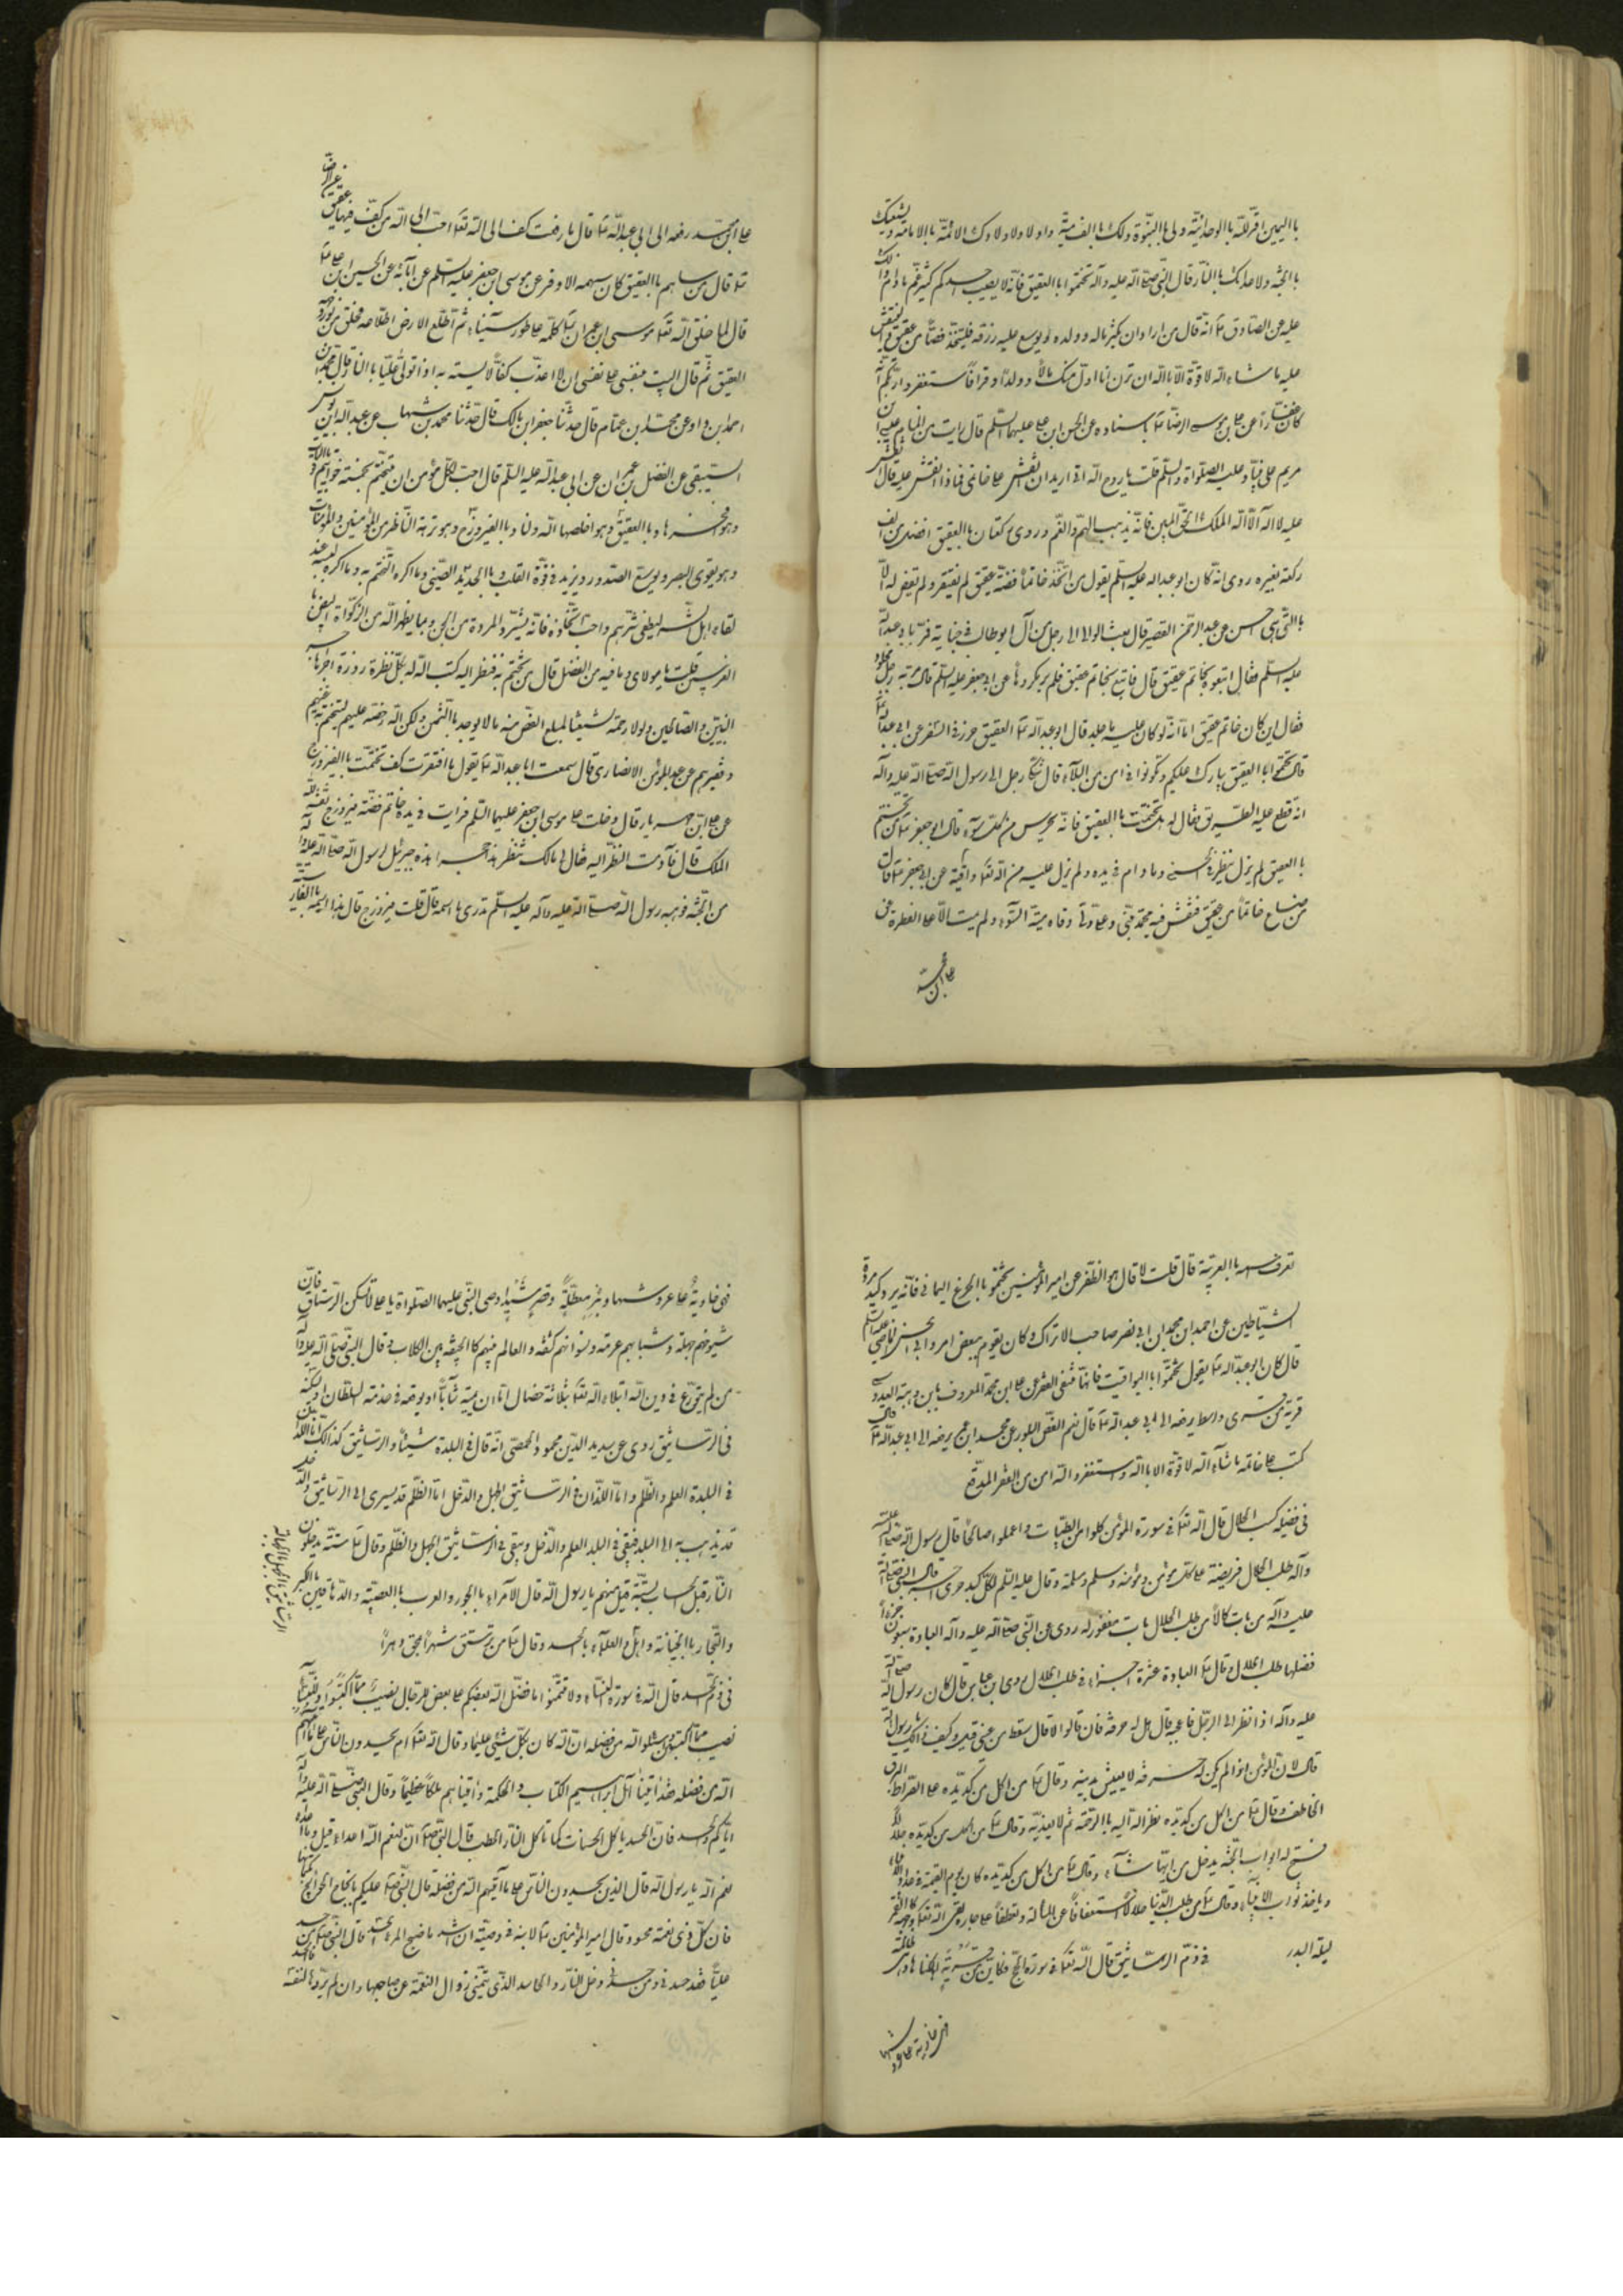 با اليمين اقر لله با الوحدانية ولى با النبوة ولك با الوصية و لاولادك الائمة با الامامة ولشيعتك
با الجنة ولاعدائك با النار قال النبي صلى اله عليه وآله تختموا با العقيق فانه لا يصيب احدكم غم ما دام ذلك
عليه عن الصادق ع انه قال من اراد ان يكثر ماله وولده او يوسع عليه رزقه فليتخذ فصا من عقيق و لينقش
عليه ما شاء اله لا قوة الا با اله ان ترن انا اقل منك مالا وولدا و استغفروا ربكم انه
كان غفارا عن على بن موسى الرضا ع باسناده عن الحسن ابن على عليهما السلم قال رايت فى المنام عيسى ابن
مريم على نبينا وعليه الصلواة والسلم قلت يا روح اله انى اريد ان انقش على خاتمى فماذا انقش عليه قال انقش
عليه لا اله الا اله الملك الحق المبين فانه يذهب الهم والغم وروى ركعتان با العقيق افضل من الف
ركعة بغيره روى انه كان ابو عبد اله عليه السلم يقول من اتخذ خاتما فضة عقيق لم يفتقر ولم تقض له الا
با التى هى احسن عن عبد الرحمن القصير قال بعث الوالى الى رجل من آل ابو طالب فى جناية فمر بابى عبد اله
عليه السلم فقال اتبعوه بخاتم عقيق قال فاتبع بخاتم عقيق فلم ير مكروها عن ابى جعفر عليه السلم قال مر به رجل مجلود
فقال اين كان خاتم عقيق اما انه لو كان عليه ما جلد قال ابو عبد اله ع العقيق حرز فى السفر عن ابى عبد اله ع
قال تختموا با العقيق يبارك عليكم وتكونوا فى امن من البلآء قال شكا رجل الى رسول اله صلى اله عليه وآله
انه قطع عليه الطريق فقال له هلا تختمت با العقيق فانه يحرس من كل سوء قال ابو جعفر ع من تختم
با العقيق لم يزل ينظر فى الحسنى وما دام فى يده ولم يزل عليه من اله تعا واقية عن ابى جعفر ع قال
من صاغ خاتما من عقيق فنقش فيه محمد نبى وعلى ولى وقاه ميتة السوء ولم يمت الا على الفطرة عن
على ابن محمد
على ابن محمد رفعه الى ابى عبد اله ع قال ما رفعت كف الى اله تعا احب الى اله من كف فيها عقيق
ع قال من ساهم با العقيق كان سهمه الاوفر عن موسى ابن جعفر عليه السلم عن ابآئه عن الحسين ابن على ع
قال لما خلق اله تعا موسى ابن عمران ع كلمه على طور سيناء ثم اطلع الارض اطلاعة فخلق من نور وجهه
العقيق ثم قال اليت بنفسى على نفسى ان لا اعذب كفا لابسته به اذا تولى عليا با النار
احمد بن داود عن محمد بن عمام قال حدثنا جعفر ابن مالك قال حدثنا محمد بن شهاب عن عبد اله ابن يونس
السبيعى عن الفضل بن عمران عن ابى عبد اله عليه السلم قال احب لكل مؤمن ان يتختم بخمسة خواتيم
وهو افخرها وبا العقيق وهو اخلصها اله ولنا وبا الفيروزج وهو نزهة الناظر من المؤمنين والمؤمنات
وهو يقوى البصر ويوسع الصدور ويزيد فى قوة القلب وبا الحديد الصينى وما اكره التختم به وما اكره لبسه عند
لقاء اهل الشر ليطفى شرهم واحب اتخاذه فانه يشرد المردة من الجن وبما يظهر اله من الزكواة البيض با
الغريين قلت يا مولاى وما فيه من الفضل قال من تختم به فنظر اليه كتب اله له بكل نظرة زورة اجرها اجر
النبيين والصالحين ولولا رحمة لشيعتنا لبلغ الفص منه ما لا يوجد با الثمن ولكن اله رخصه عليهم ليتختم به غنيهم
وفقيرهم عن عبد المؤمن الانصارى قال سمعت ابا عبد اله ع يقول ما افتقرت كف تختمت با الفيروزج
عن على ابن مهزيار قال دخلت على موسى ابن جعفر عليهما السلم فرايت فى يده خاتم فضة فيروزج نقشه لله
الملك قال فادمت النظر اليه فقال لى مالك تنظر هذا حجر اهداه جبرئيل لرسول اله صلى اله عليه وآله
من الجنة فوهبه رسول اله صلى اله عليه وآله عليه السلم تدرى ما اسمه قال قلت فيروزج قال هذا اسمه با الفارسية
تعرف اسمه با العربية قال قلت لا قال هو الظفر عن امير المؤمنين تختموا با الجزع اليمانى فانه يرد كيد مردة
الشياطين عن احمد ابن محمد ابن ابى نصر صاحب الاتراك وكان يقوم ببعض امور ابى الحسن الماضى عليه السلم
قال كان ابو عبد اله ع يقول تختموا با اليواقيت فانها تنفى الفقر عن على ابن محمد المعروف بابن وهبة العبدسى
قرية من قرى واسط يرفعه الى ابى عبد اله ع قال نعم الفص البلور عن محمد ابن يرفعه الى ابى عبد اله ع قال
كتب على خاتمه ما شآء اله لا قوة الا با اله واستغفر اله امن من الفقر المدقع
فى فضيلة كسب الحلال قال اله تعا فى سورة المؤمن كلوا من الطيبات واعملوا صالحا قال رسول اله صلى اله عليه
وآله طلب الحلال فريضة على كل مؤمن ومؤمنة ومسلم ومسلمة وقال عليه السلم لكل كبد حرى قال النبى صلى اله
عليه وآله من بات كالا من طلب الحلال بات مغفور له روى عن النبى صلى اله عليه وآله العبادة سبعون جزءا
فضلها طلب الحلال وقال ع العبادة عشرة اجزاء فى طلب الحلال روى ابن عباس قال كان رسول اله صلى اله
عليه وآله اذا نظر الى الرجل فاعجبه قال هل له حرفة فان قالوا لا قال سقط من عينى قيل وكيف ذلك يا رسول اله
قال لان المؤمن اذا لم يكن له حرفة لا يعيش بدينه وقال ع من اكل من كد يده على الصراط البرق
الخاطف وقال ع من اكل من كد يده نظر اله اليه با الرحمة ثم لا يعذبه وقال ع من اكل من كد يده حلالا
فتح له ابواب الجنة يدخل من ايها شآء وقال ع من اكل من كد يده كان يوم القيمة فى عداد الانبياء
وياخذ ثواب الانبياء وقال ع من طلب الدنيا حلالا استعفافا عن المسألة وتعطفا على جاره لقى اله تعا ووجهه كالقمر
ليلة البدر فى ذم الرساتيق قال اله تعا فى سورة الحج فكاين من قرية اهلكناها وهى ظالمة
فهى خاوية على عروشها
فهى خاوية على عروشها وبئر معطلة وقصر مشيد اوصى النبى عليهما الصلواة يا على لا تسكن الرستاق فان
شيوخهم جهلة وشبابهم عرمة ونسوانهم كشفة والعالم فيهم كا الجيفة بين الكلاب وقال النبى صلى اله عليه وآله
من لم يتورع فى دين اله ابتلاه اله تعا بثلاثة خصال اما ان يميته شآبا او يوقعه فى خدمة السلطان او يسكنه
فى الرساتيق روى عن سديد الدين محمود الحمصى انه قال فى البلدة شيئا والرساتيق كذالك اما اللذان
فى البلدة العلم والظلم واما اللذان فى الرساتيق الجهل والدخل اما الظلم قد يسرى الى الرساتيق والدخل
قد يذهب به الى البلد فبقى فى البلد العلم والدخل وبقى فى الرساتيق الجهل والظلم وقال ع ستة يدخلون
النار قبل الحساب بستة قيل منهم يا رسول اله قال الامراء با الجور والعرب با العصبية والدهاقين با الكبر
والتجار با الخيانة واهل الرساتيق با الجهالة والعلمآء با الحسد وقال ع من ترستق شهرا محق دهرا
فى ذم الحسد قال اله فى سورة النسآء ولا تتمنوا ما فضل اله بعضكم على بعض للرجال نصيب مما اكتسبوا وللنسآء
نصيب مما اكتسبن وسئلوا اله من فضله ان اله كان بكل شيئى عليما وقال اله تعا ام يحسدون الناس على ما آتيهم
اله من فضله فقد اتينا آل ابراهيم الكتاب والحكمة واتيناهم ملكا عظيما وقال النبى صلى اله عليه وآله
اياكم والحسد فان الحسد ياكل الحسنات كما تاكل النار الحطب قال النبى صلعم ان لنعم اله اعداء قيل وما اعداء
نعم اله يا رسول اله قال الذين يحسدون الناس على ما آتيهم اله من فضله قال النبى صلعم عليكم بانجاح الحوائج بكتمانها
فان كل ذى نعمة محسود وقال امير المؤمنين ع لابنه فى وصيته قال النبى صلعم من حسد
عليا فقد حسدنى ومن حسدنى دخل النار والحاسد الذى يتمنى زوال النعمة عن صاحبها وان لم يردها لنفسه